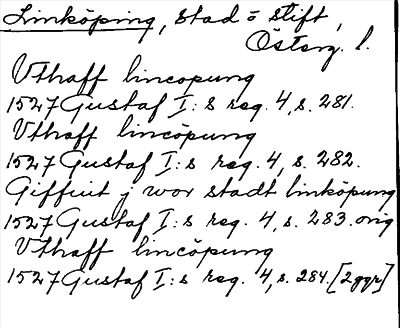 Linköping, stad o stift,
Österg. l.
Vthaff lincopung
1527 Gustaf I:s reg. 4, s. 281.
Vthaff lincöpung
1527 Gustaf I:s reg. 4, s. 282.
Giffuit j wor stadt linköpung
1527 Gustaf I:s reg. 4, s. 283. orig
Vthaff lincöpung
1527 Gustaf I:s reg. 4, s. 284. [2ggr]